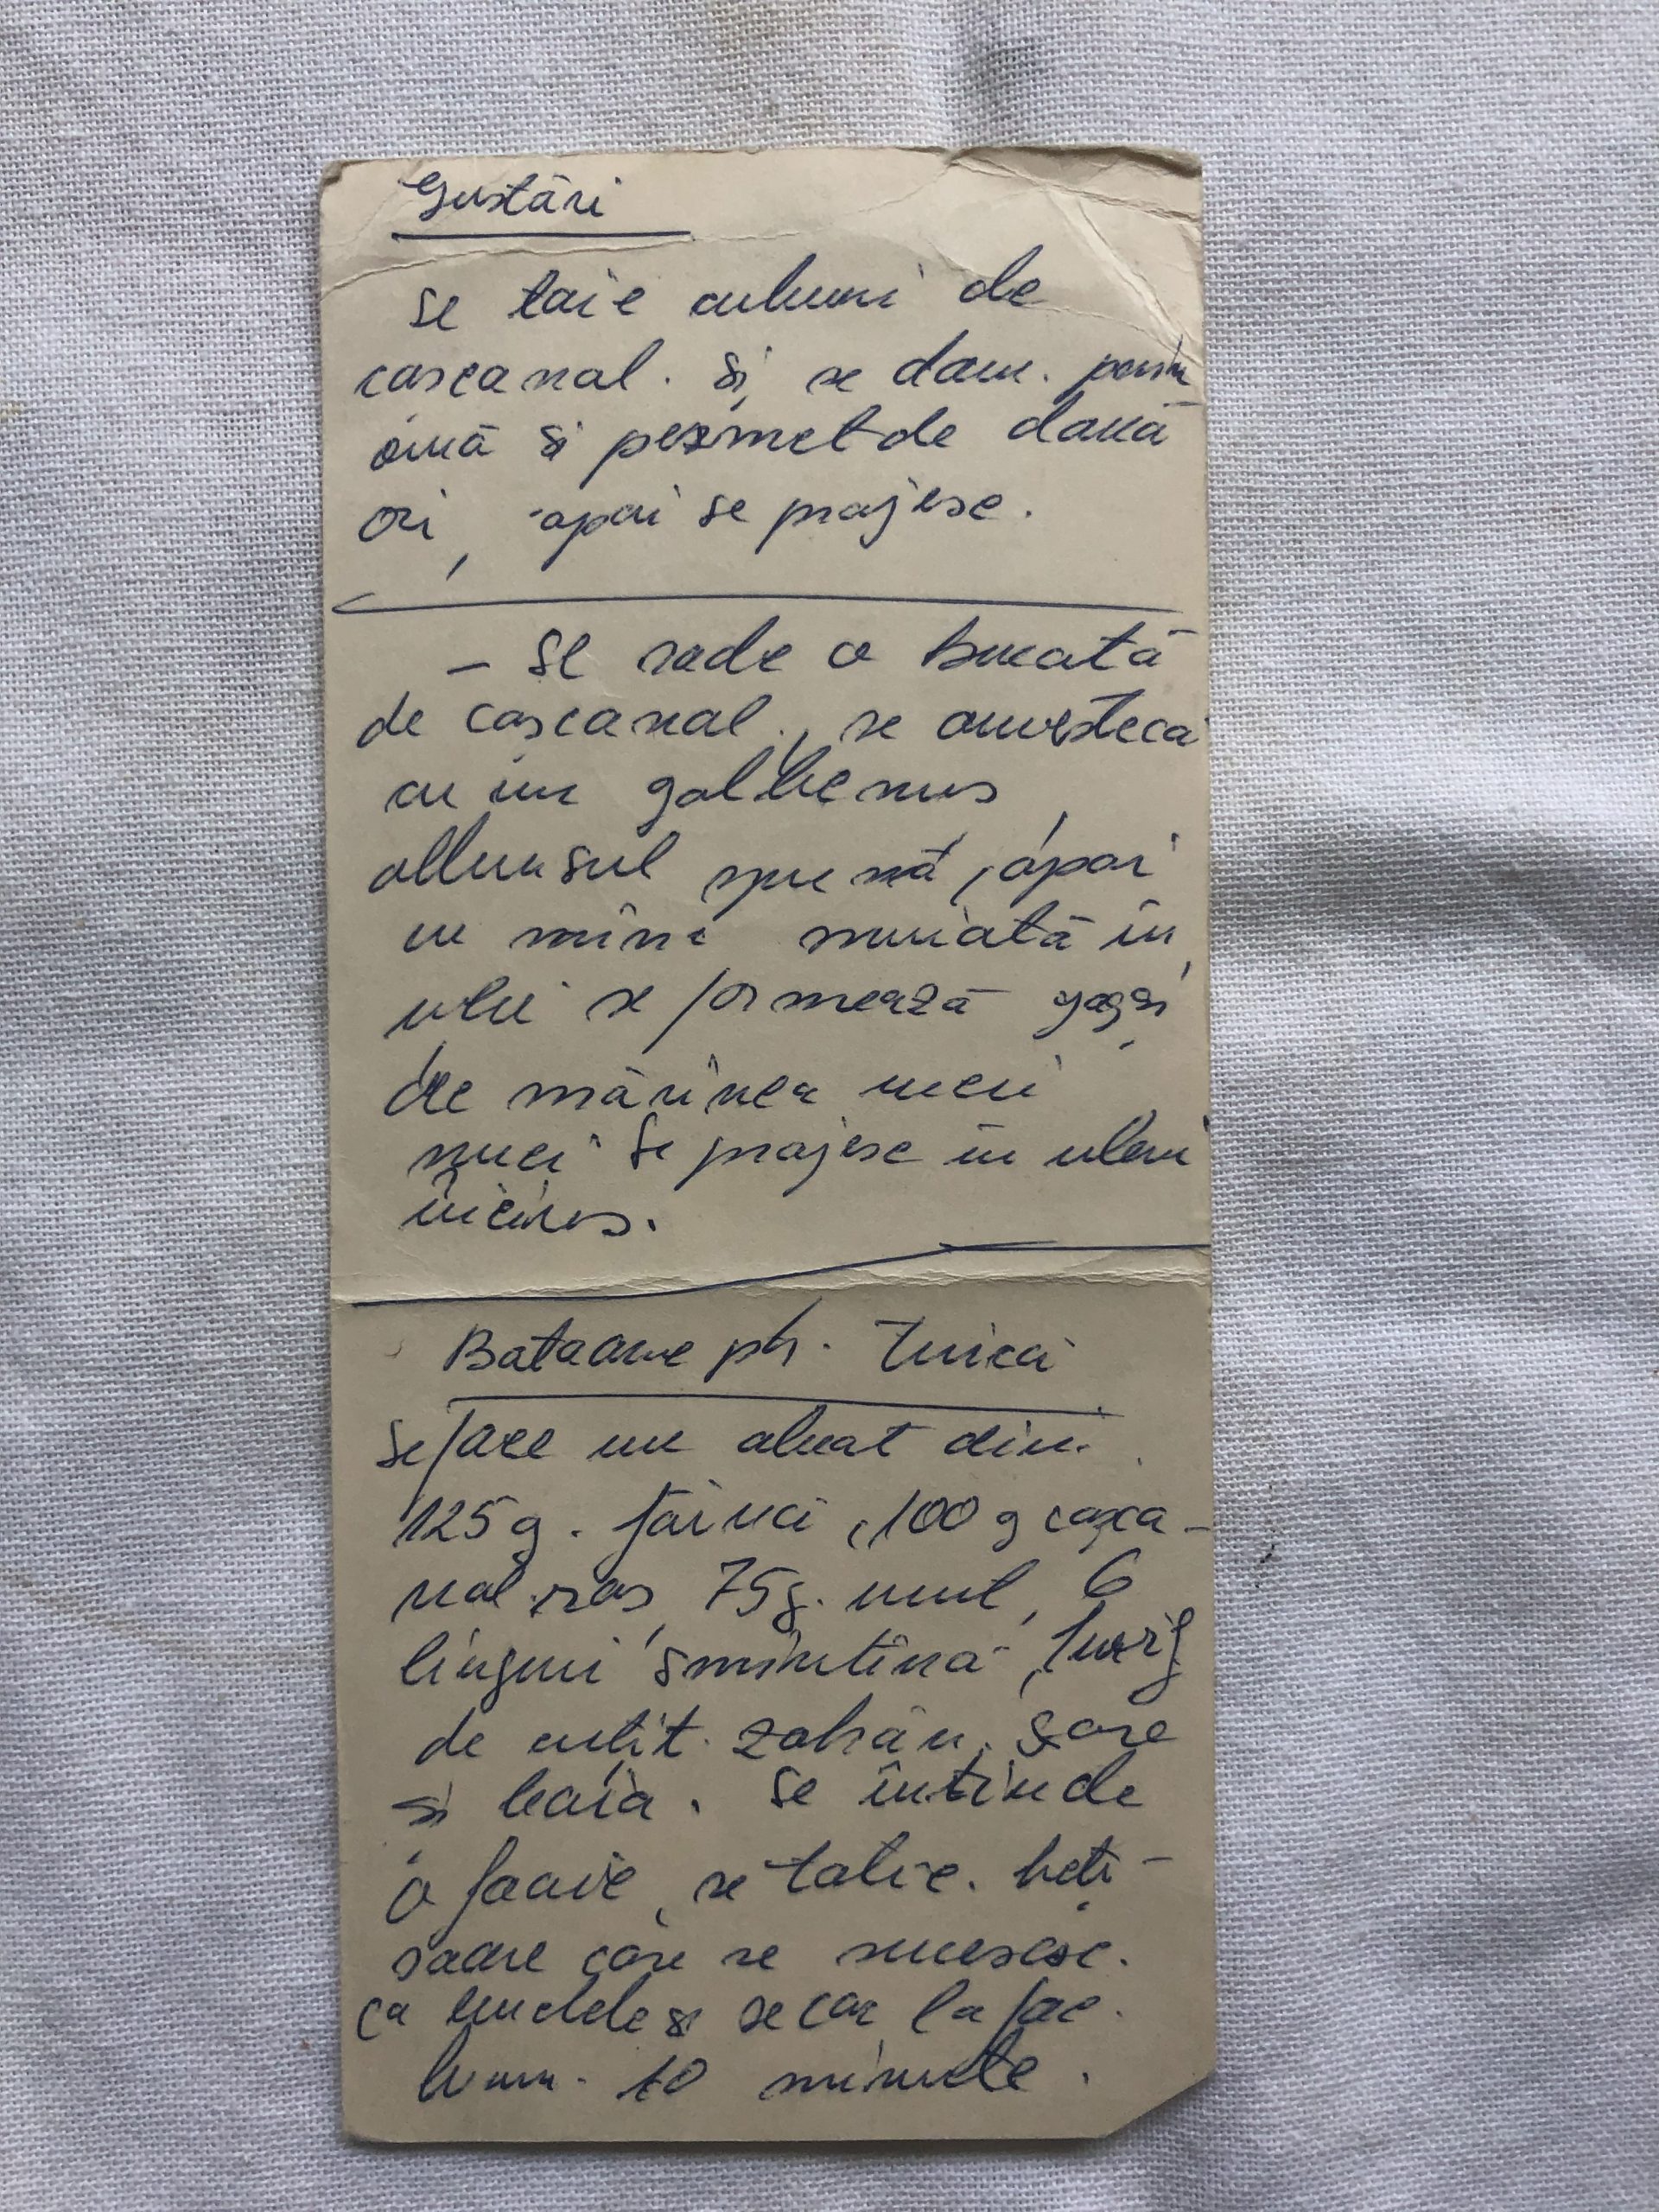 Gustări
Se taie cuburi de
cașcaval. Și se dau. prin
ouă și pesmet de două
ori, apoi se prăjesc.
— Se rade o bucată
de cașcaval, se amestecă
cu un gălbenuș,
albușul spumă, apoi
cu mîna muiată în
ulei se formează gogoși
de mărimea unei
nuci Se prăjesc în ulei
încins.
Batoane ptr. Țuică
Se face un aluat din.
125 g. făină, 100 g cașca-
val ras, 75g. unt, 6
linguri smîntînă, 1 vîrf
de cuțit. zahăr, sare
și boia. Se întinde
o foaie, se taie. beți-
șoare care se răsucesc.
ca și se coc la foc
bun. 10 minute.